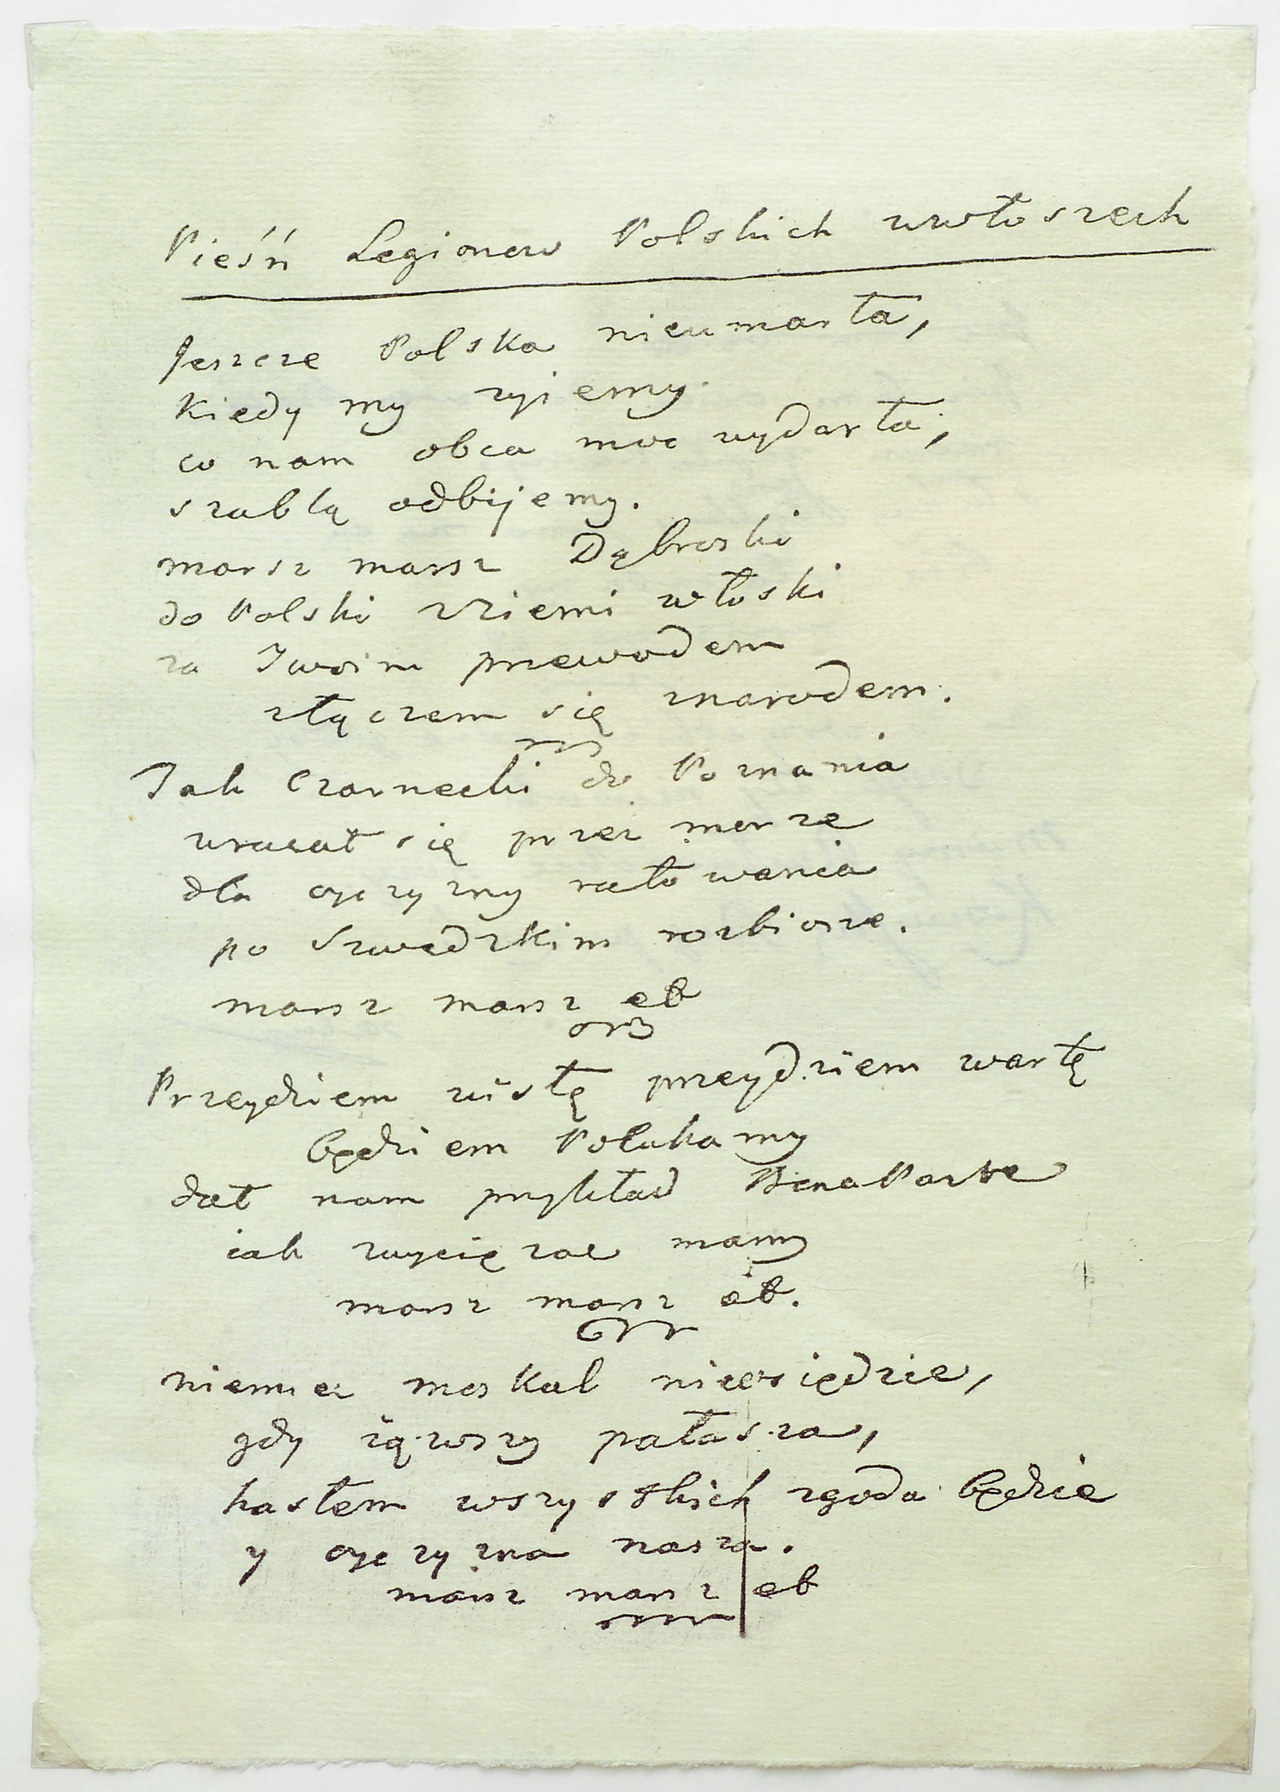 Pieśń Legionow Polskich wewłoszech
Jeszcze Polska nieumarła,
Kiedy my żyiemy.
co nam obca moc wydarła,
szablą odbijemy.
marsz marsz Dąbroski
do Polski z ziemi włoski
za Twoim przewodem
złączem się znarodem.
Jak Czarnecki do Poznania
wracał się przez morze
dla oyczyzny ratowania
po Szwedzkim rozbiorze.
marsz marsz
Przeydziem wisłę przeydziem wartę
będziem Polakamy
dał nam przykład BonaParte
iak zwyciężac mamy
marsz marsz
niemiec moskal nieosiędzie,
gdy iąwszy pałasza,
hasłem wszystkich zgoda będzie
y oyczyzna nasza.
marsz marsz